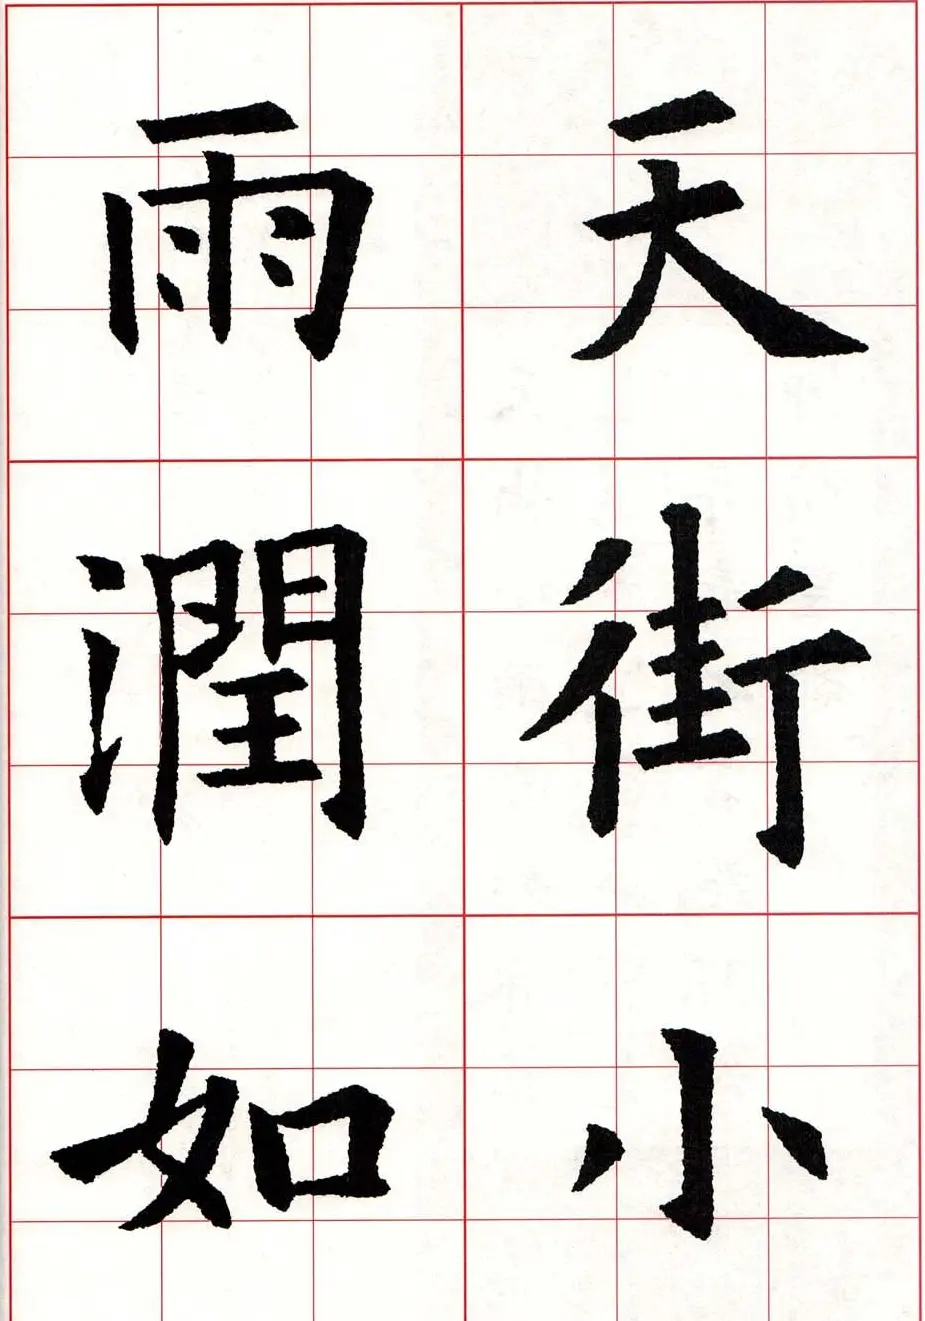 天街小
雨潤如